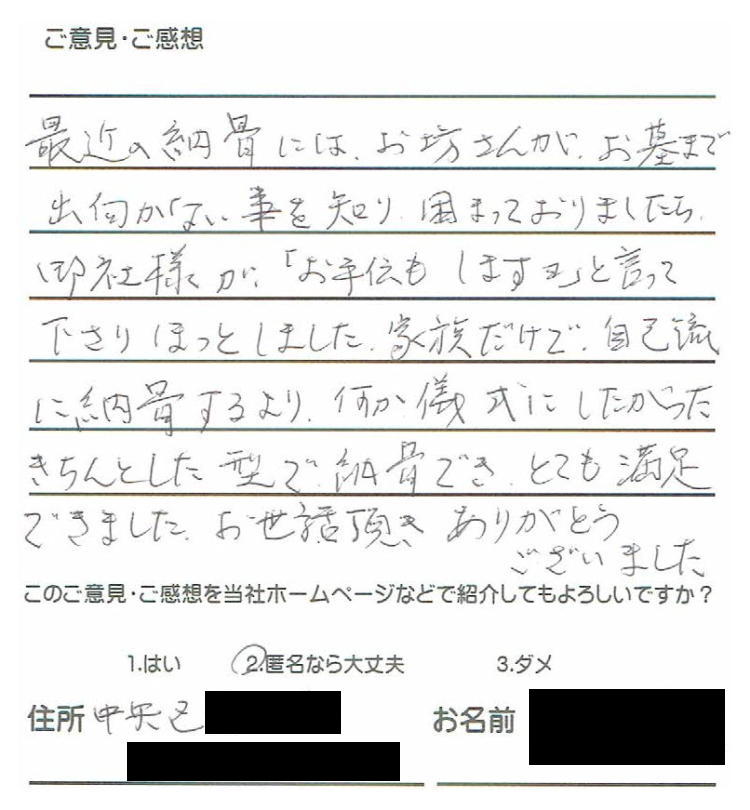 ご意見・ご感想
最近の納骨には、お坊さんが、お墓まで
出向かない事を知り、困まっておりましたら、
御社様が、「お手伝もしますヨ」と言って
下さりほっとしました。家族だけで、自己流
に納骨するより、何か儀式にしたかった
きちんとした型で納骨でき、とても満足
できました。お世話頂き ありがとう
ございました
このご意見・ご感想を当社ホームページなどで紹介してもよろしいですか？
1.はい 2.匿名なら大丈夫 3.ダメ
住所 中央区 お名前